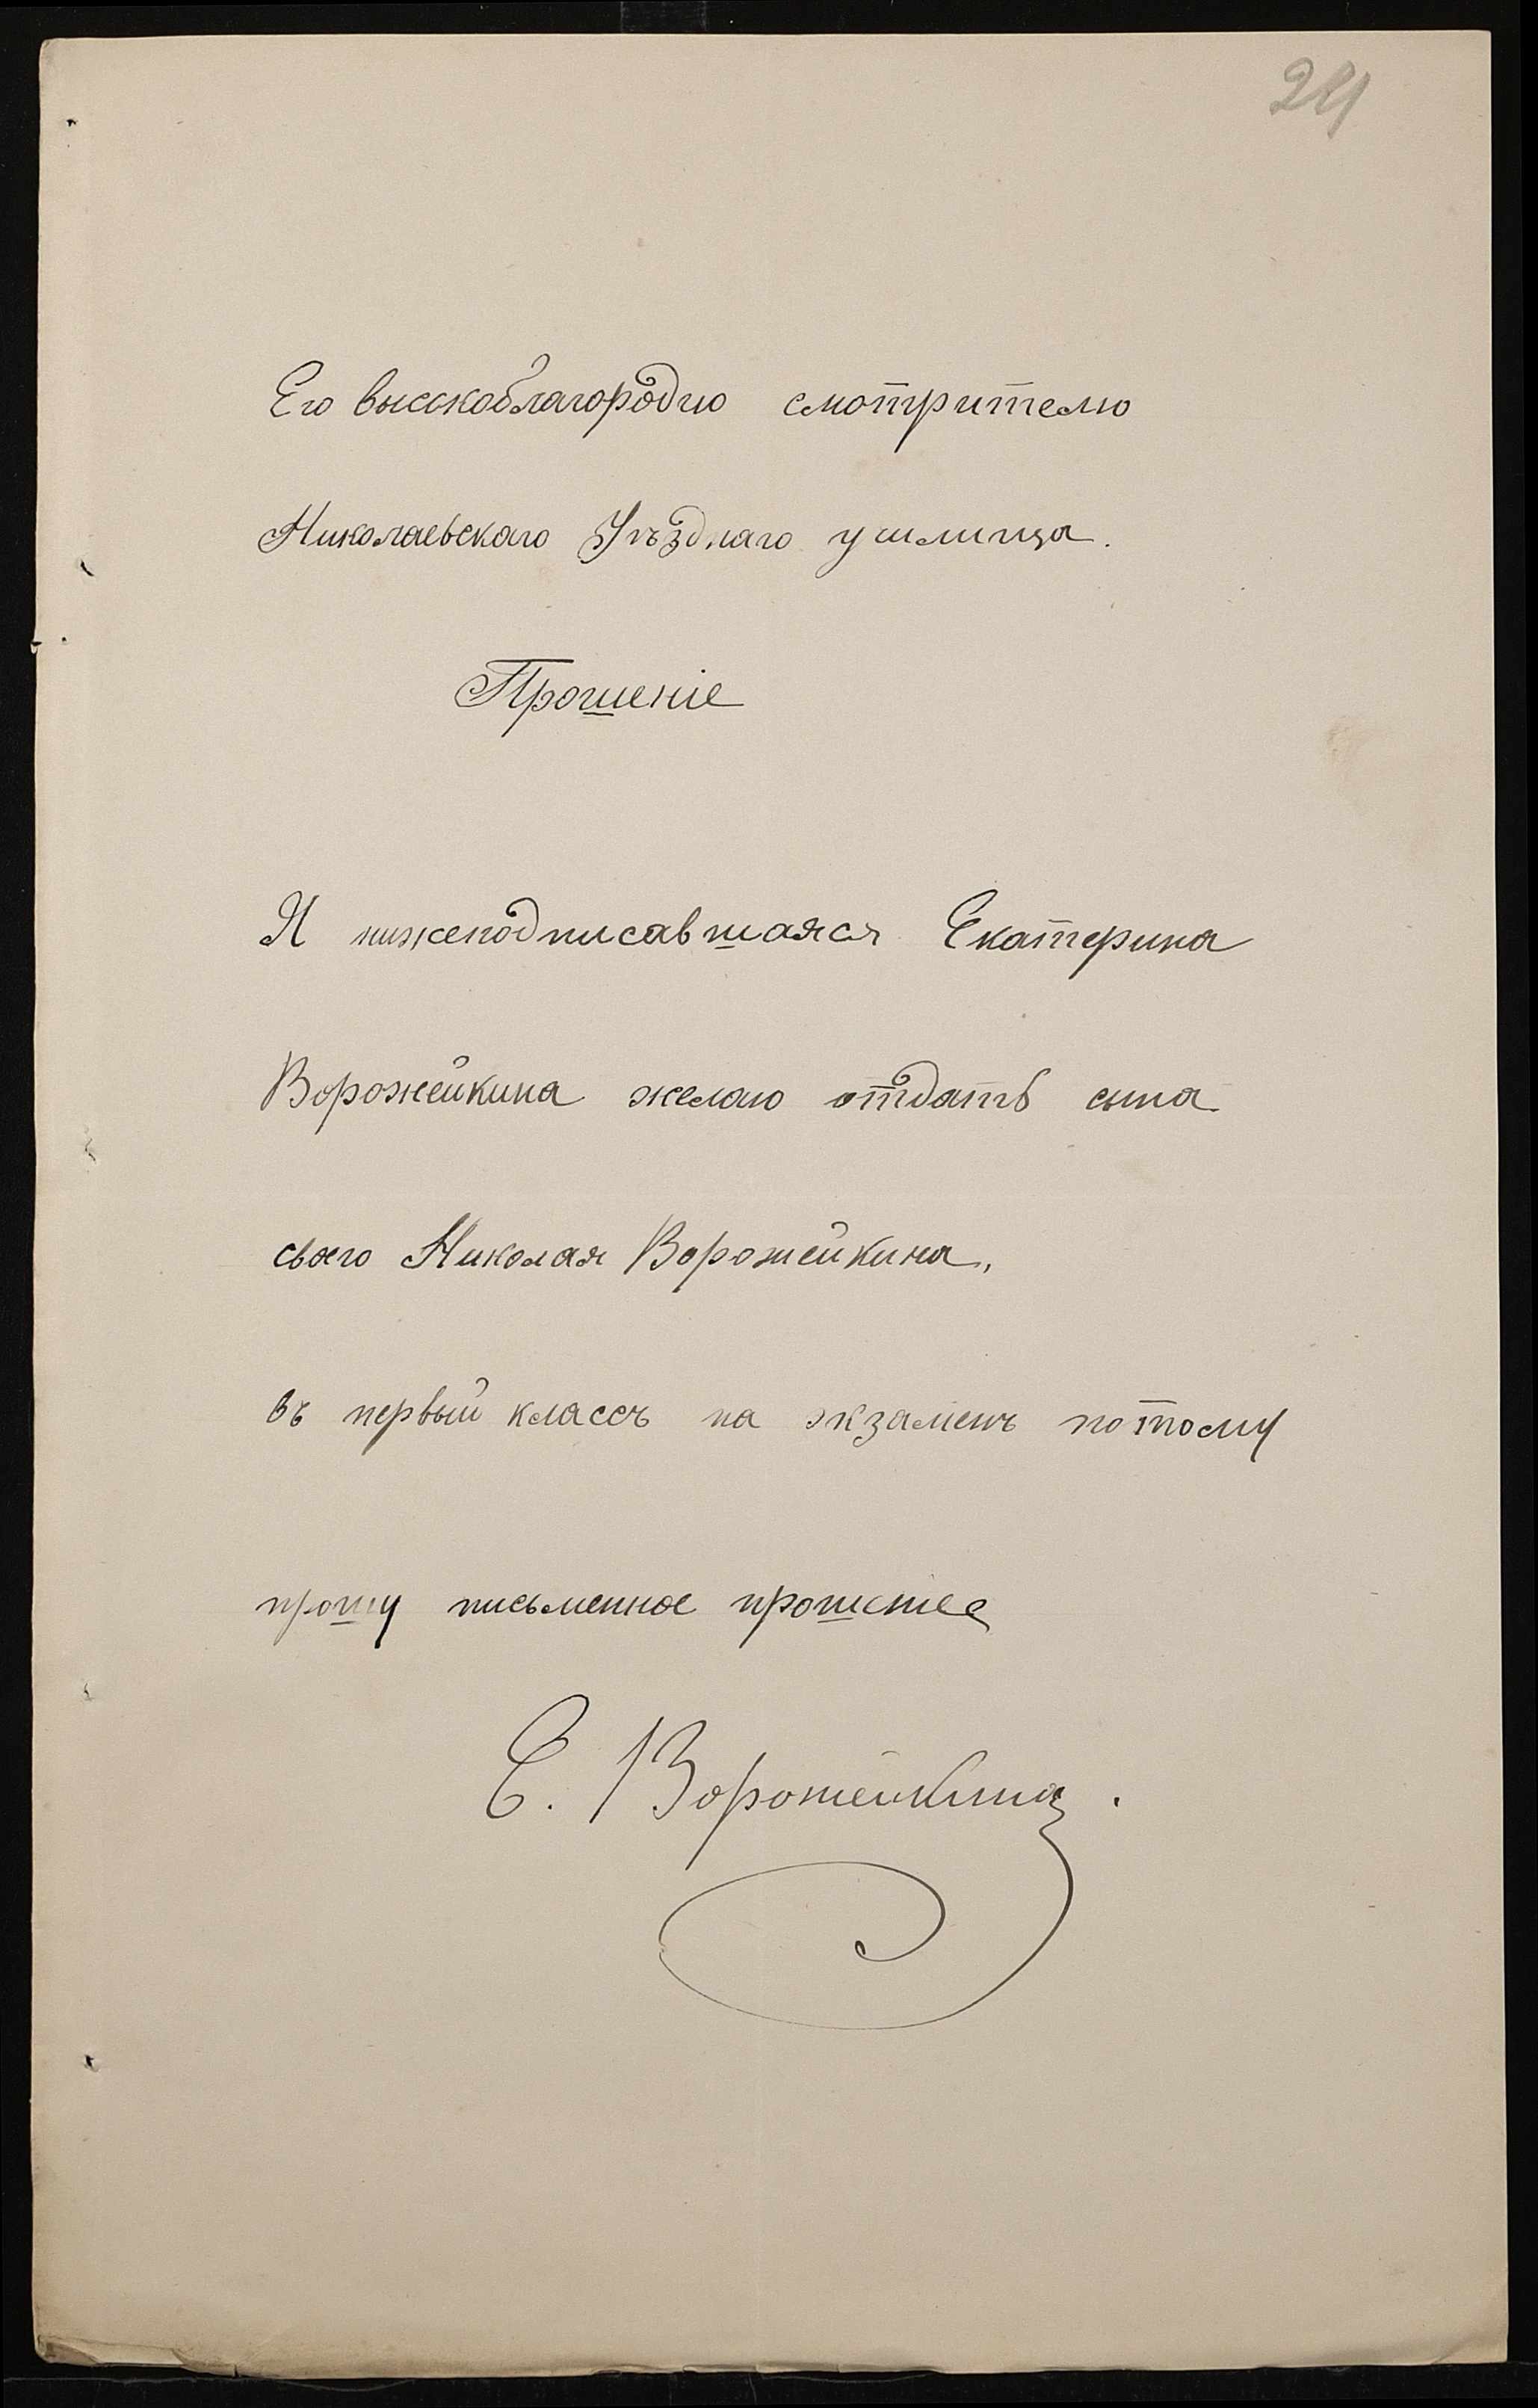 24
Его высокоблагородию смотрителю
Николаевскаго Уѣзднаго училища.
Прошеніе
Я нижеподписавшаяся Екатерина
Ворожейкина желаю отдать сына
своего Николая Ворожейкина,
въ первый классъ на экзаменъ потому
прошу письменное прошение
Е. Ворожейкина.